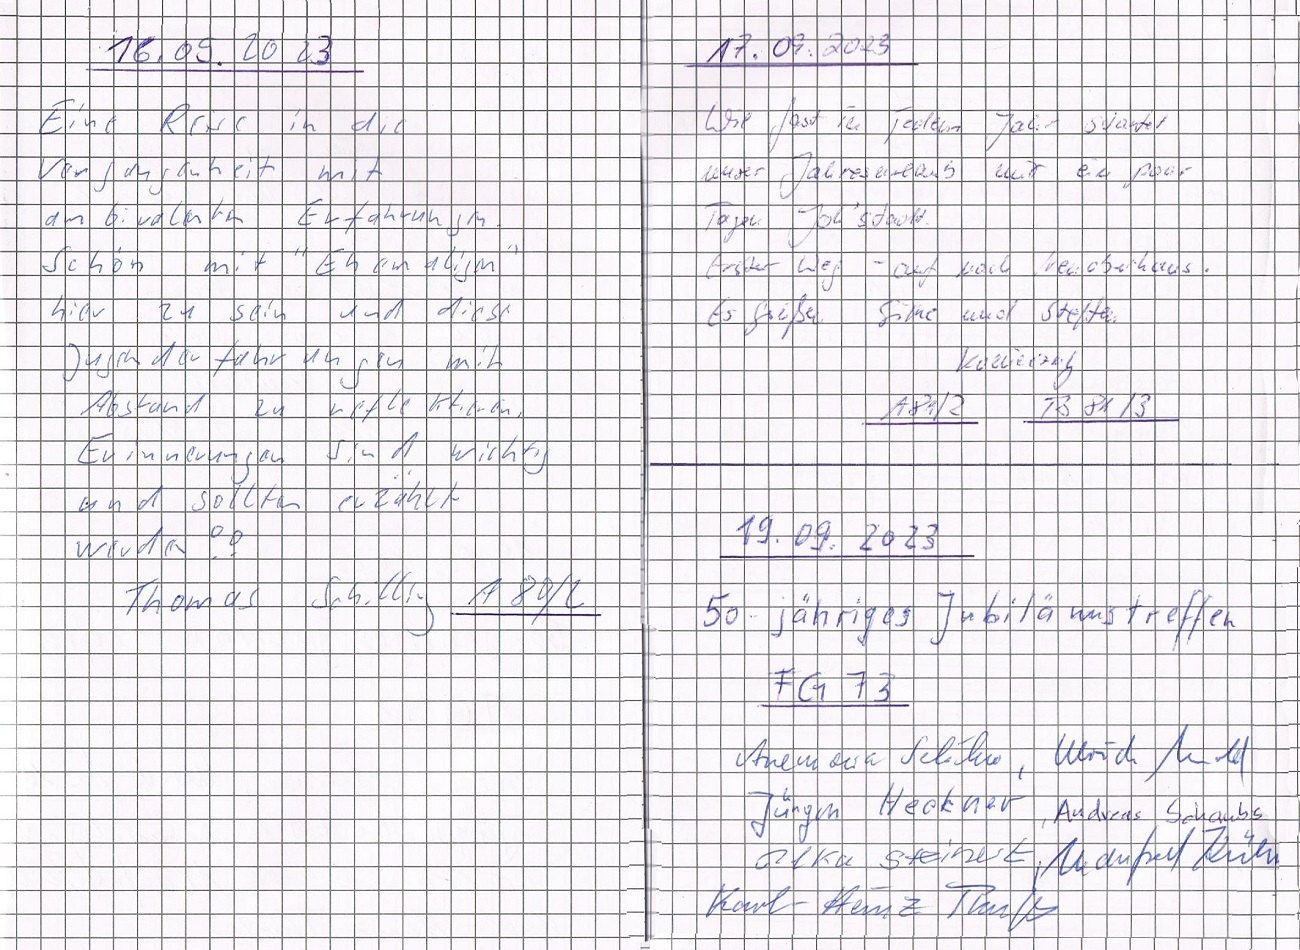 16.09.2023
Eine Reise in die
Vergangenheit mit
ambivalenten Erfahrungen.
Schön mit "Ehemaligen"
hier zu sein und diese
Jugenderfahrungen mit
Abstand zu reflektieren.
Erinnerungen sind wichtig
und sollten erzählt
werden !!
Thomas Schilling A 80/2
17.09.2023
Wie fast in jedem Jahr startet
unser Jahresurlaub mit ein paar
Tagen Joh'stadt.
Erster Weg - auf nach Neuoberhaus.
Es grüßen und Steffen
A81/2 B 81/3
19.09.2023
50-jähriges Jubiläumstreffen
FG 73
Ulrich
Jürgen Heckner, Andreas Schaubs
Steinert,
Karl-Heinz